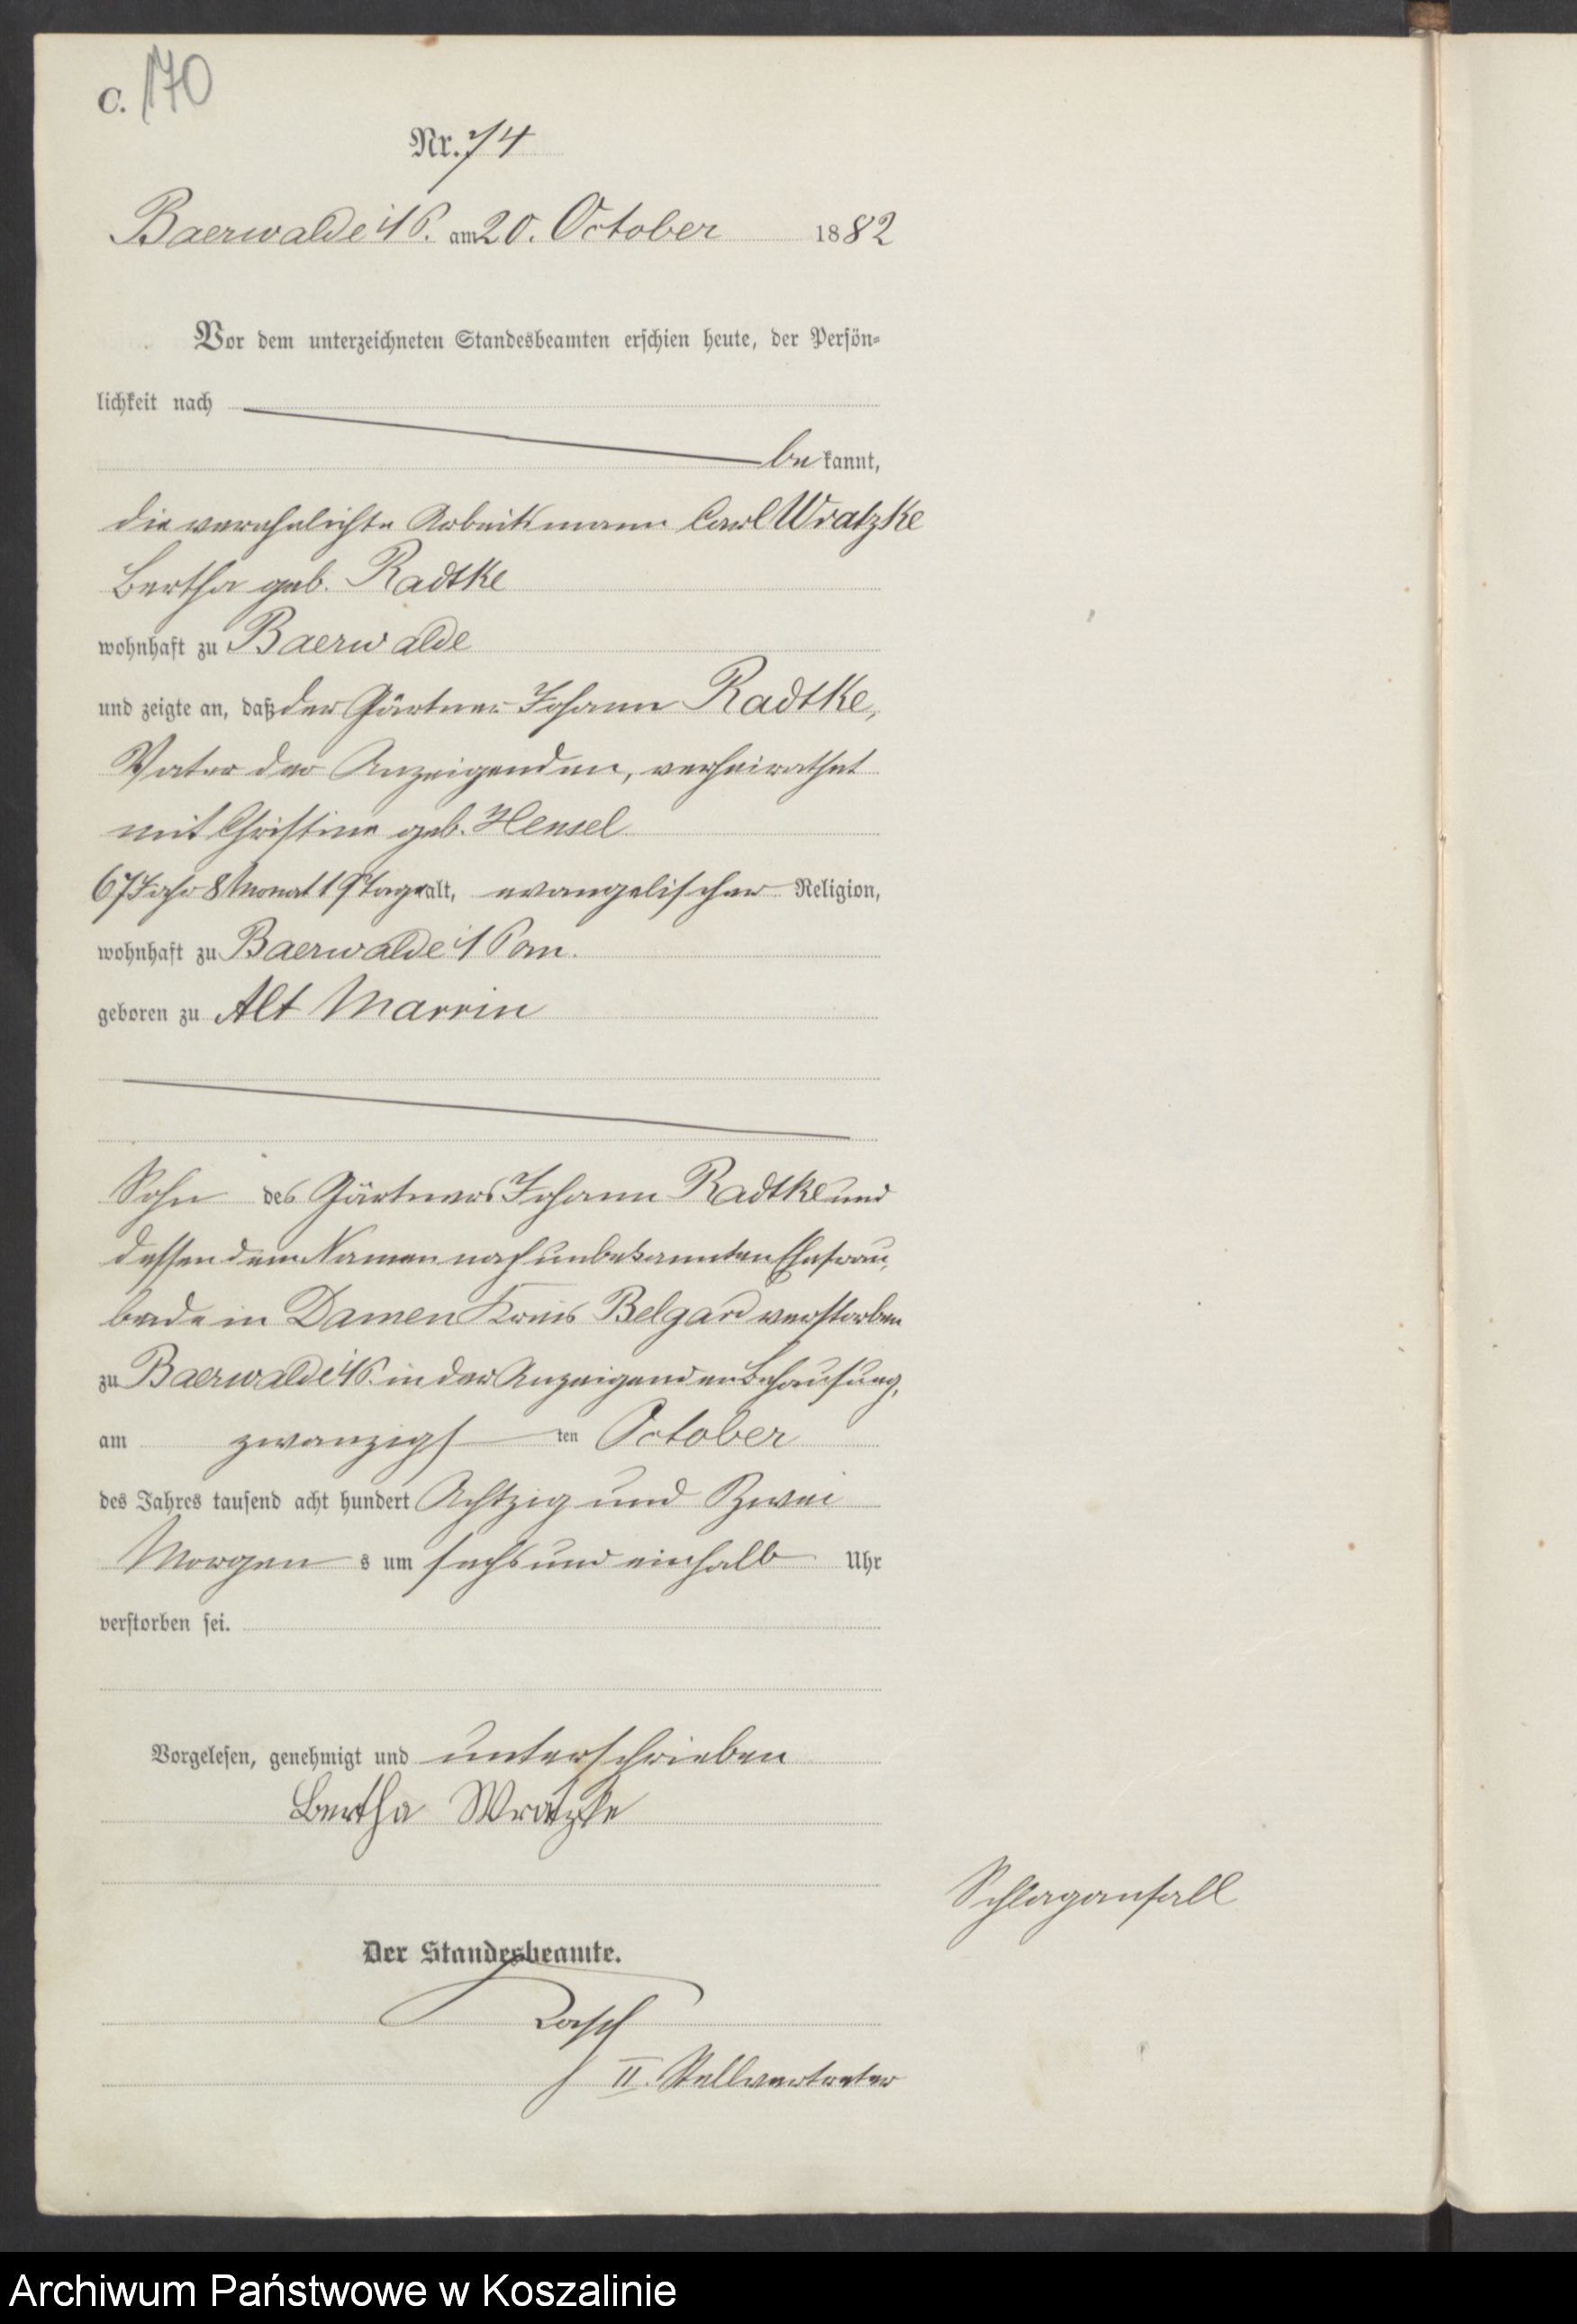 C. 170
Nr. 74
Baerwalde i/P. am 20. October 1882
Vor dem unterzeichneten Standesbeamten erschien heute, der Persön-
lichkeit nach
bekannt,
die verehelichte Arbeitsmann Carl Wratzke
Bertha geb. Radtke
wohnhaft zu Baerwalde
und zeigte an, daß der Gärtner Johann Radtke,
Vater der Anzeigenden, verheirathet
mit Christine geb. Hensel
67 Jahr 8 Monat 19 Tage alt, evangelischer Religion,
wohnhaft zu Baerwalde i/Pom.
geboren zu Alt Marrin
Sohn des Gärtners Johann Radtke und
dessen dem Namen nach unbekannten Ehefrau,
beide in Damen Kreis Belgard verstorben
zu Baerwalde i/P. in der Anzeigenden Behausung,
am zwanzigsten October
des Jahres tausend acht hundert Achtzig und Zwei
Morgens um sechs und einhalb Uhr
verstorben sei.
Vorgelesen, genehmigt und unterschrieben
Bertha Wratzke
Schlaganfall
Der Standesbeamte.
II. Stellvertreter
Archiwum Państwowe w Koszalinie